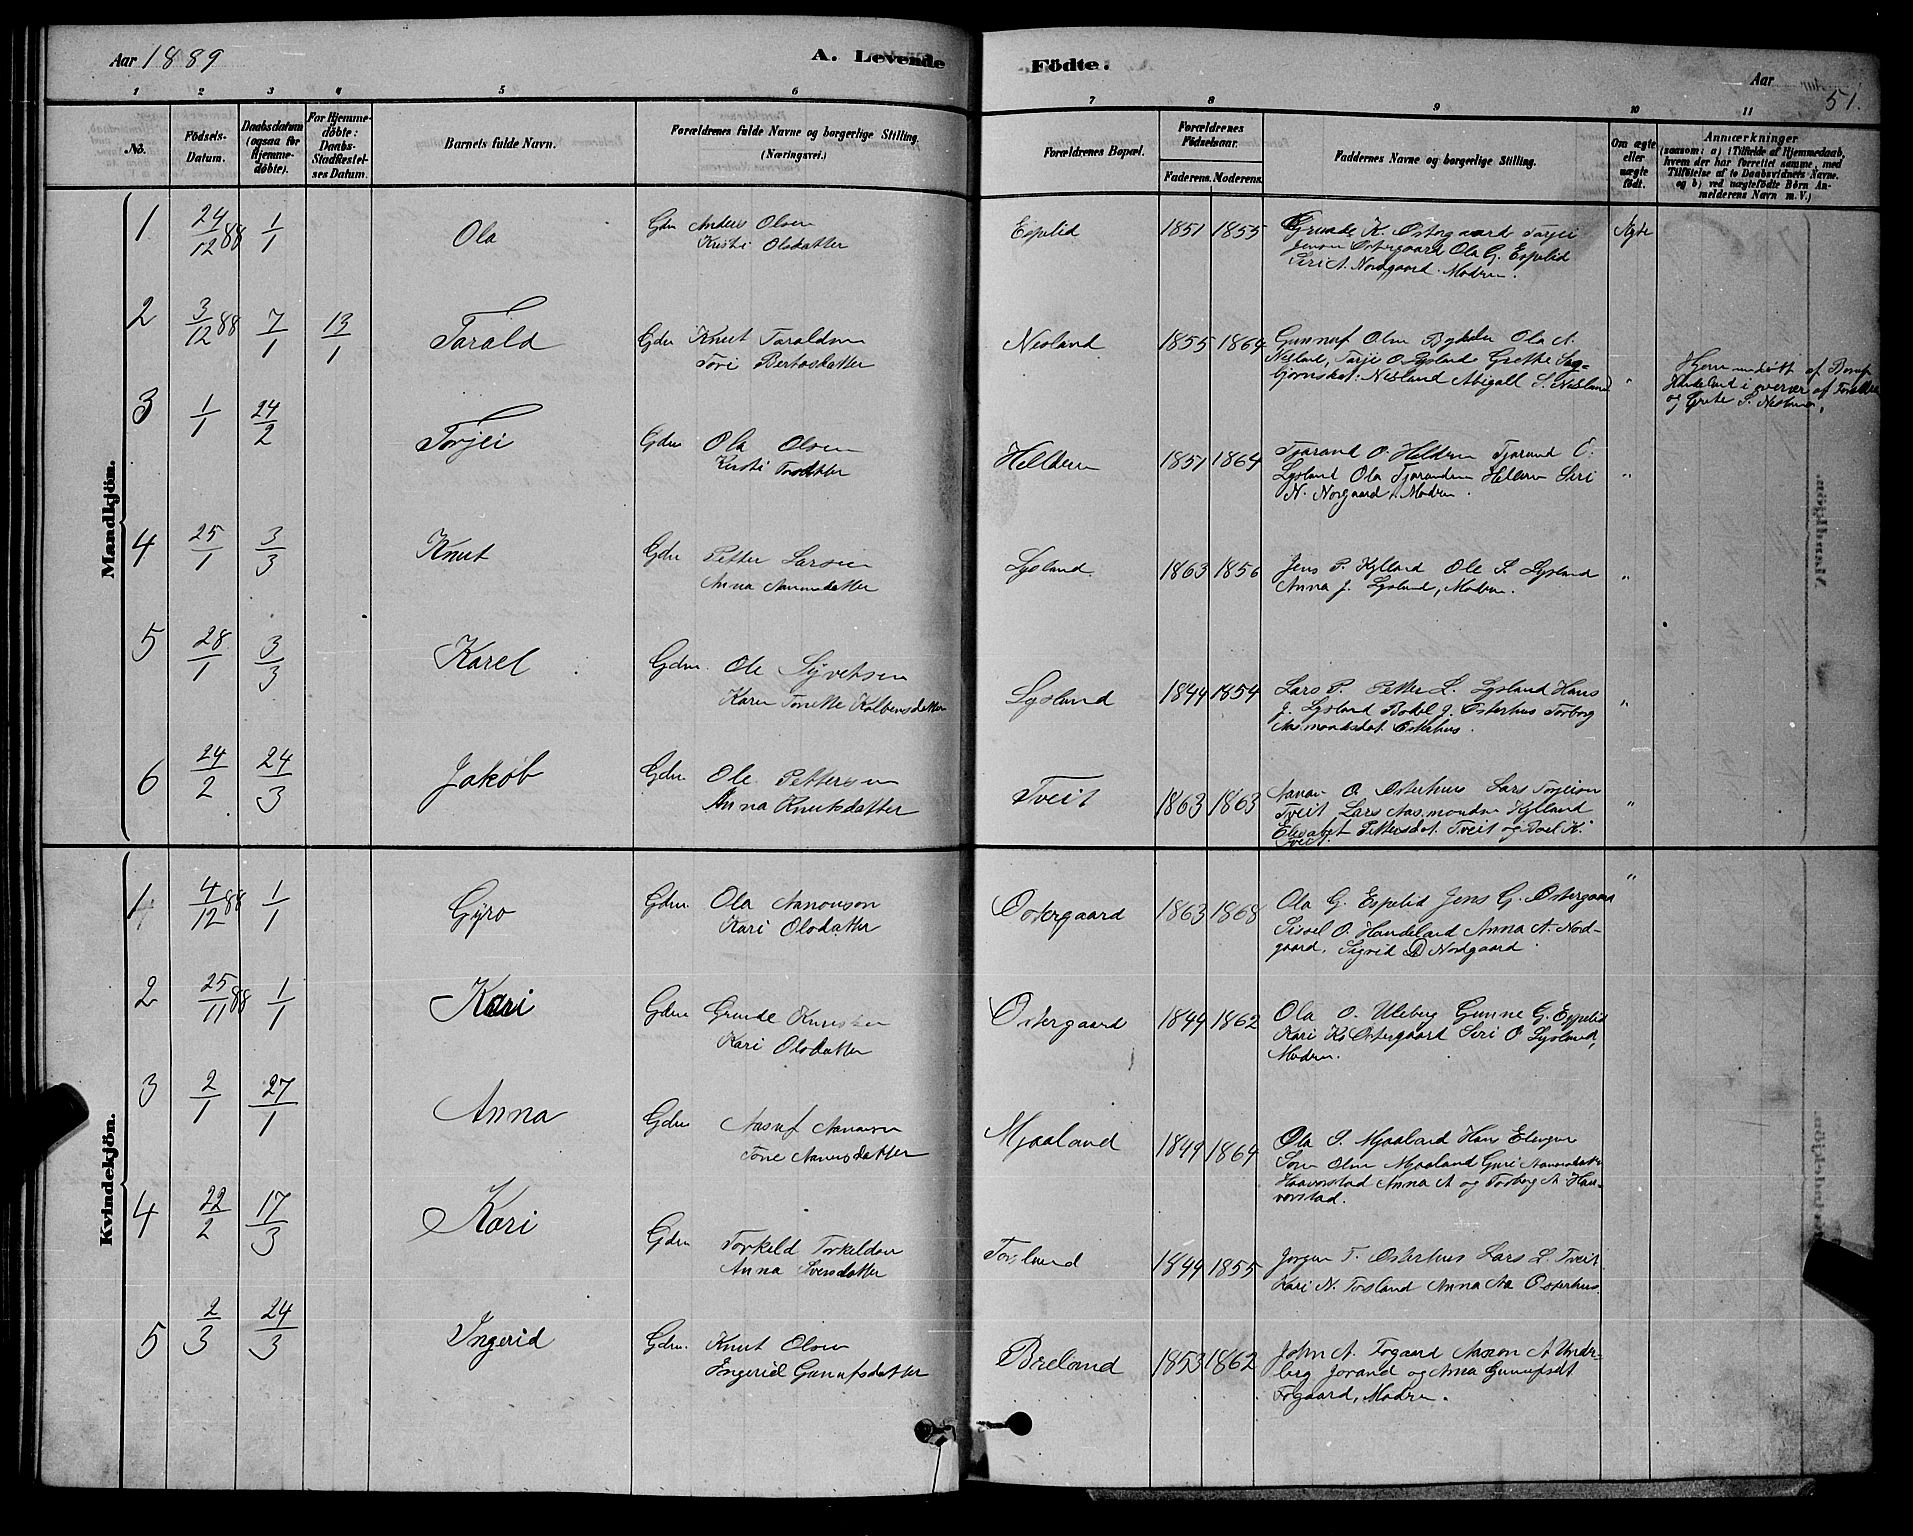 Aar 1889
A. Levende Födte.
Aar
51.
1 2 3 4 5 6 7 8 9 10 11
No.
Födsels-Datum.
Daabsdatum (ogsaa for Hjemme-döbte).
For Hjemme-döbte: Daabs-Stadfæstel-ses Datum.
Barnets fulde Navn.
Forældrenes fulde Navne og borgerlige Stilling.
(Næringsvei.)
Forældrenes Bopæl.
Forældrenes Födselsaar.
Faderens. Moderens.
Faddernes Navne og borgerlige Stilling.
Om ægte eller uægte födt.
Anmærkninger
(saasom: a) i Tilfælde af Hjemmedaab,
hvem der har forrettet samme, med
Tilföielse af to Daabsvidners Navne.
og b) ved uægtefödte Börn An-
melderens Navn m. V.)
Mandkjön.
1 24/12 88 1/1 Ola Gdm Anders Olsen
Kirsti Olsdatter
Espelid 1851 1855 Grunde K. Ostergaard Tarjei
Jensen Ostergaard Ola G. Espelid
Siri A. Nordgaard. Modren.
Ægte
2 3/12 88 7/1 13/1 Tarald Gdm Knut Taraldsen
Tori Bertosdatter
Nesland 1855 1864 Gunnuf Olsen Ola A.
Nesland, Tarje O. Lysland Grethe Sig-
bjornsdat: Nesland Abigall S. Nesland "
af
i overvær af
og Grete S. Nesland.
3 1/1 24/2 Torjei Gdm Ola Olsen
Kirsti
Helderen 1851 1864 Tjorand O Helderen Tjorand O.
Lysland Ola Tjorandsen Helderen Siri
N. Norgaard, Modren. "
4 25/1 3/3 Knut Gdm Petter Larsen
Anna Aanensdatter
Lysland. 1863 1856 Jens P. Hylland Ole S. Lysland
Anna J. Lysland, Modren. "
5 28/1 3/3 Karel Gdm. Ole Syvertsen
Karen Tonette Kolbensdatter
Lysland 1844 1854 Lars P. Petter L. Lysland Hans
J. Lysland Bodel J. Osterhus Torborg
Aasmondsdat. Osterhus. "
6 24/2 24/3 Jakob Gdm Ole Pettersen
Anna Knutsdatter
Tveit 1863 1863 Aanon O. Osterhus Lars Torjeisen
Tveit Lars Aasmondsen Hylland
Elisabet Pettersdat. Tveit og Boel K.
Tveit. "
Kvindekjön.
1 4/12 88 1/1 Gyro Gdm Ola Aanonson
Kari Olsdatter
Ostergaard 1863 1868 Ola G. Espelid Jens G. Ostergaard
Sissel O. Handeland Anna A. Nod-
gaard, Sigrid D Nodgaard "
2 25/11 88 1/1 Kari Gdm Grunde Knutsen
Kari Olsdatter
Ostergaard 1844 1862 Ola O. Uleberg Gunne G. Espelid
Kari Ks Ostergaard Siri O Lysland,
Modren.
3 2/1 27/1 Anna Gdm Aanonsen
Tone Aanensdatter
Mjaaland 1849 1864 Ola S. Mjaaland Hans
Olsen Mjaaland Guri
Haaverstad Anna A og Torborg A. Haa-
verstad.
4 22/2 17/3 Kari Gdm Torkeld Torkeldsen
Anna Iversdatter
Torsland 1844 1855 Jorgen T. Osterhus Lars L. Tveit
Kari N. Torsland Anna Aa Osterhus.
5 2/3 24/3 Ingerid Gdm. Knut Olsen
Engerid Gunufsdatter
Breland 1853 1862 John A. Fogaard Aasson A Under-
berg Jorand og Anna Gunufsdt
Fogaard, Modren.